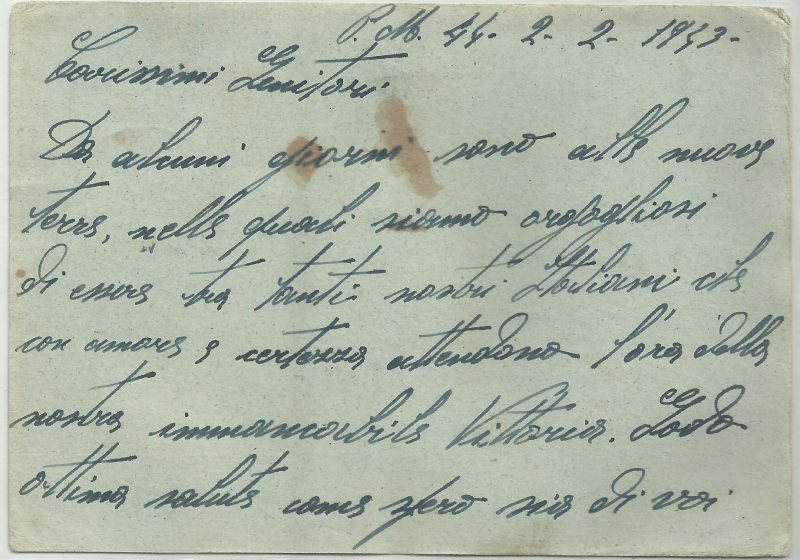 P. M. 44 - 2 - 2 - 1943 -
Carissimi Genitori
Da alcuni giorni sono alle nuove
terre, nelle quali siamo orgogliosi
di essere tra tanti nostri Italiani che
con amore e certezza attendono l'ora della
nostra immancabile Vittoria. Godo
ottima salute come spero sia di voi